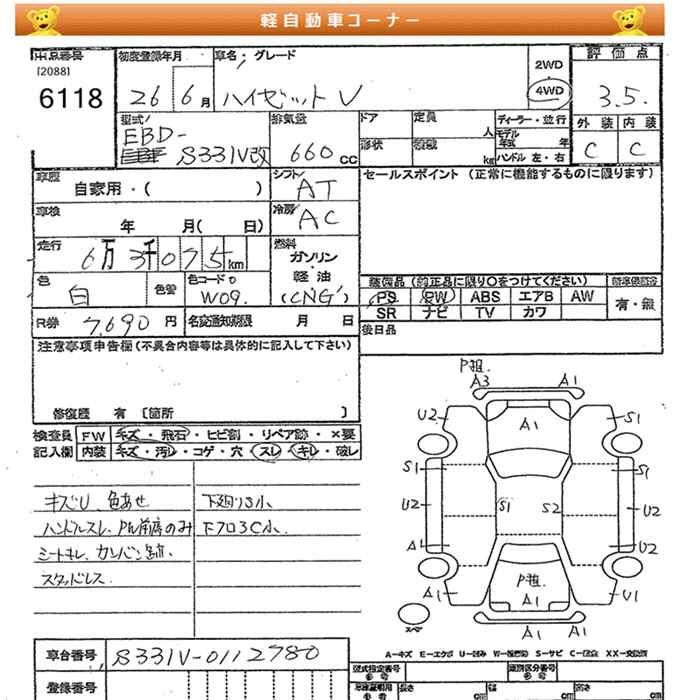 軽自動車コーナー
出品番号
[2088]
6118
初度登録年月
26 6月
車名・グレード
ハイゼットV
2WD
4WD
評価点
3.5.
型式
EBD-
S331V改
排気量
660cc
ドア
定員
人
形状
積載
kg
ディーラー・並行
モデル
年式 年
ハンドル 左・右
外装 内装
C C
車歴
自家用・( )
シフト
AT
セールスポイント (正常に機能するものに限ります)
車検
年 月( 日)
冷房
AC
走行
6万3千075km
燃料
ガソリン
・
軽油
(CNG)
色
白
色替
色コードロ
W09.
装備品(純正品に限り○をつけてください)
PS PW ABS エアB AW
SR ナビ TV カワ
有・無
R券 7,690円
名変通知期限 月 日
後日品
注意事項申告欄(不具合内容等は具体的に記入して下さい)
修復歴 有 〔箇所 〕
検査員
記入欄
FW キズ・飛石・ヒビ割・リペア跡・×要
内装 キズ・汚レ・コゲ・穴・スレ・キレ・破レ
キズU、色あせ
下廻りS小
ハンドルスレ、PW前席のみ
下フロ3C小、
シートキレ、カンバン跡、
スタッドレス
P粗.
A3 A1
U2 A1 S1
S1 S1
U2 S1 S2 U2
A1 U2
P粗.
A1 A1 U1
A1 A1
スペア
A-キズ E-エクボ U-凹み W-補修跡 S-サビ C-腐食 XX-交換済
車台番号 S331V-0112780
登録番号
型式指定番号
参考
類別区分番号
参考
長さ 幅 高さ